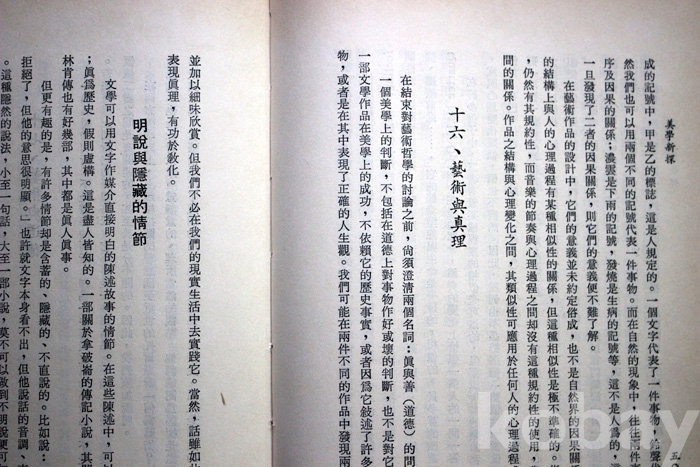 美學新探
成的記號中，甲是乙的標誌，這是人規定的。一個文字代表了一件事物，鈴聲
然我們也可以用兩個不同的記號代表一件事物。而在自然的現象中，往往兩件事
序及因果的關係；濃雲是下雨的記號，發燒是生病的記號等，這不是人爲的，
一旦發現了二者的因果關係，則它們的意義便不難了解。
在藝術作品的設計中，它們的意義並未約定俗成，也不是自然界的因果關係
的結構上與人的心理過程有某種相似性的關係，但這種相似性是極不準確的。
，仍然有其規約性，而音樂的節奏與心理過程之間却沒有這種規約性的使用，
間的關係。作品之結構與心理變化之間，其類似性可應用於任何人的心理過程
十六、藝術與真理
在結束對藝術哲學的討論之前，尚須澄清兩個名詞：眞與善（道德）的問
一個美學上的判斷，不包括在道德上對事物作好或壞的判斷，也不是對它
一部文學作品在美學上的成功，不依賴它的歷史事實，或者因爲它敘述了許多
物，或者是在其中表現了正確的人生觀。我們可能在兩件不同的作品中發現兩
並加以細味欣賞。但我們不必在我們的現實生活中去實踐它。當然，話雖如此
表現眞理，有功於敎化。
明說與隱藏的情節
文學可以用文字作媒介直接明白的陳述故事的情節。在這些陳述中，可
；眞爲歷史，假則虛構。這是盡人皆知的。一部關於拿破崙的傳記小說，其間
林肯傳也有好幾部，其中都是眞人眞事。
但更有趣的是，有許多情節却是含蓄的、隱藏的、不直說的。比如說：
拒絕了，但他的意思很明顯。」也許就文字本身看不出，但他說話的音調、
。這種隱然的說法，小至一句話，大至一部小說，莫不可以做到不明說便可
kobay